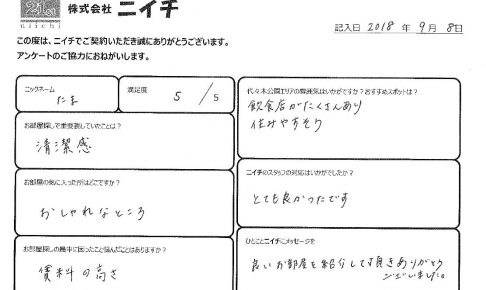 21est
niichi
株式会社 ニイチ
記入日 2018 年 9 月 8 日
この度は、ニイチでご契約いただき誠にありがとうございます。
アンケートのご協力におねがいします。
ニックネーム
たま
満足度 5 / 5
お部屋探しで重要視していたことは？
清潔感
お部屋の気に入った所はどこですか？
おしゃれなところ
お部屋探しの最中に困ったこと悩んだことはありますか？
賃料の高さ
代々木公園エリアの雰囲気はいかがですか？おすすめスポットは？
飲食店がたくさんあり
住みやすそう
ニイチのスタッフの対応はいかがでしたか？
とても良かったです
ひとことニイチにメッセージを
良いお部屋を紹介して頂きありがとう
ございました。